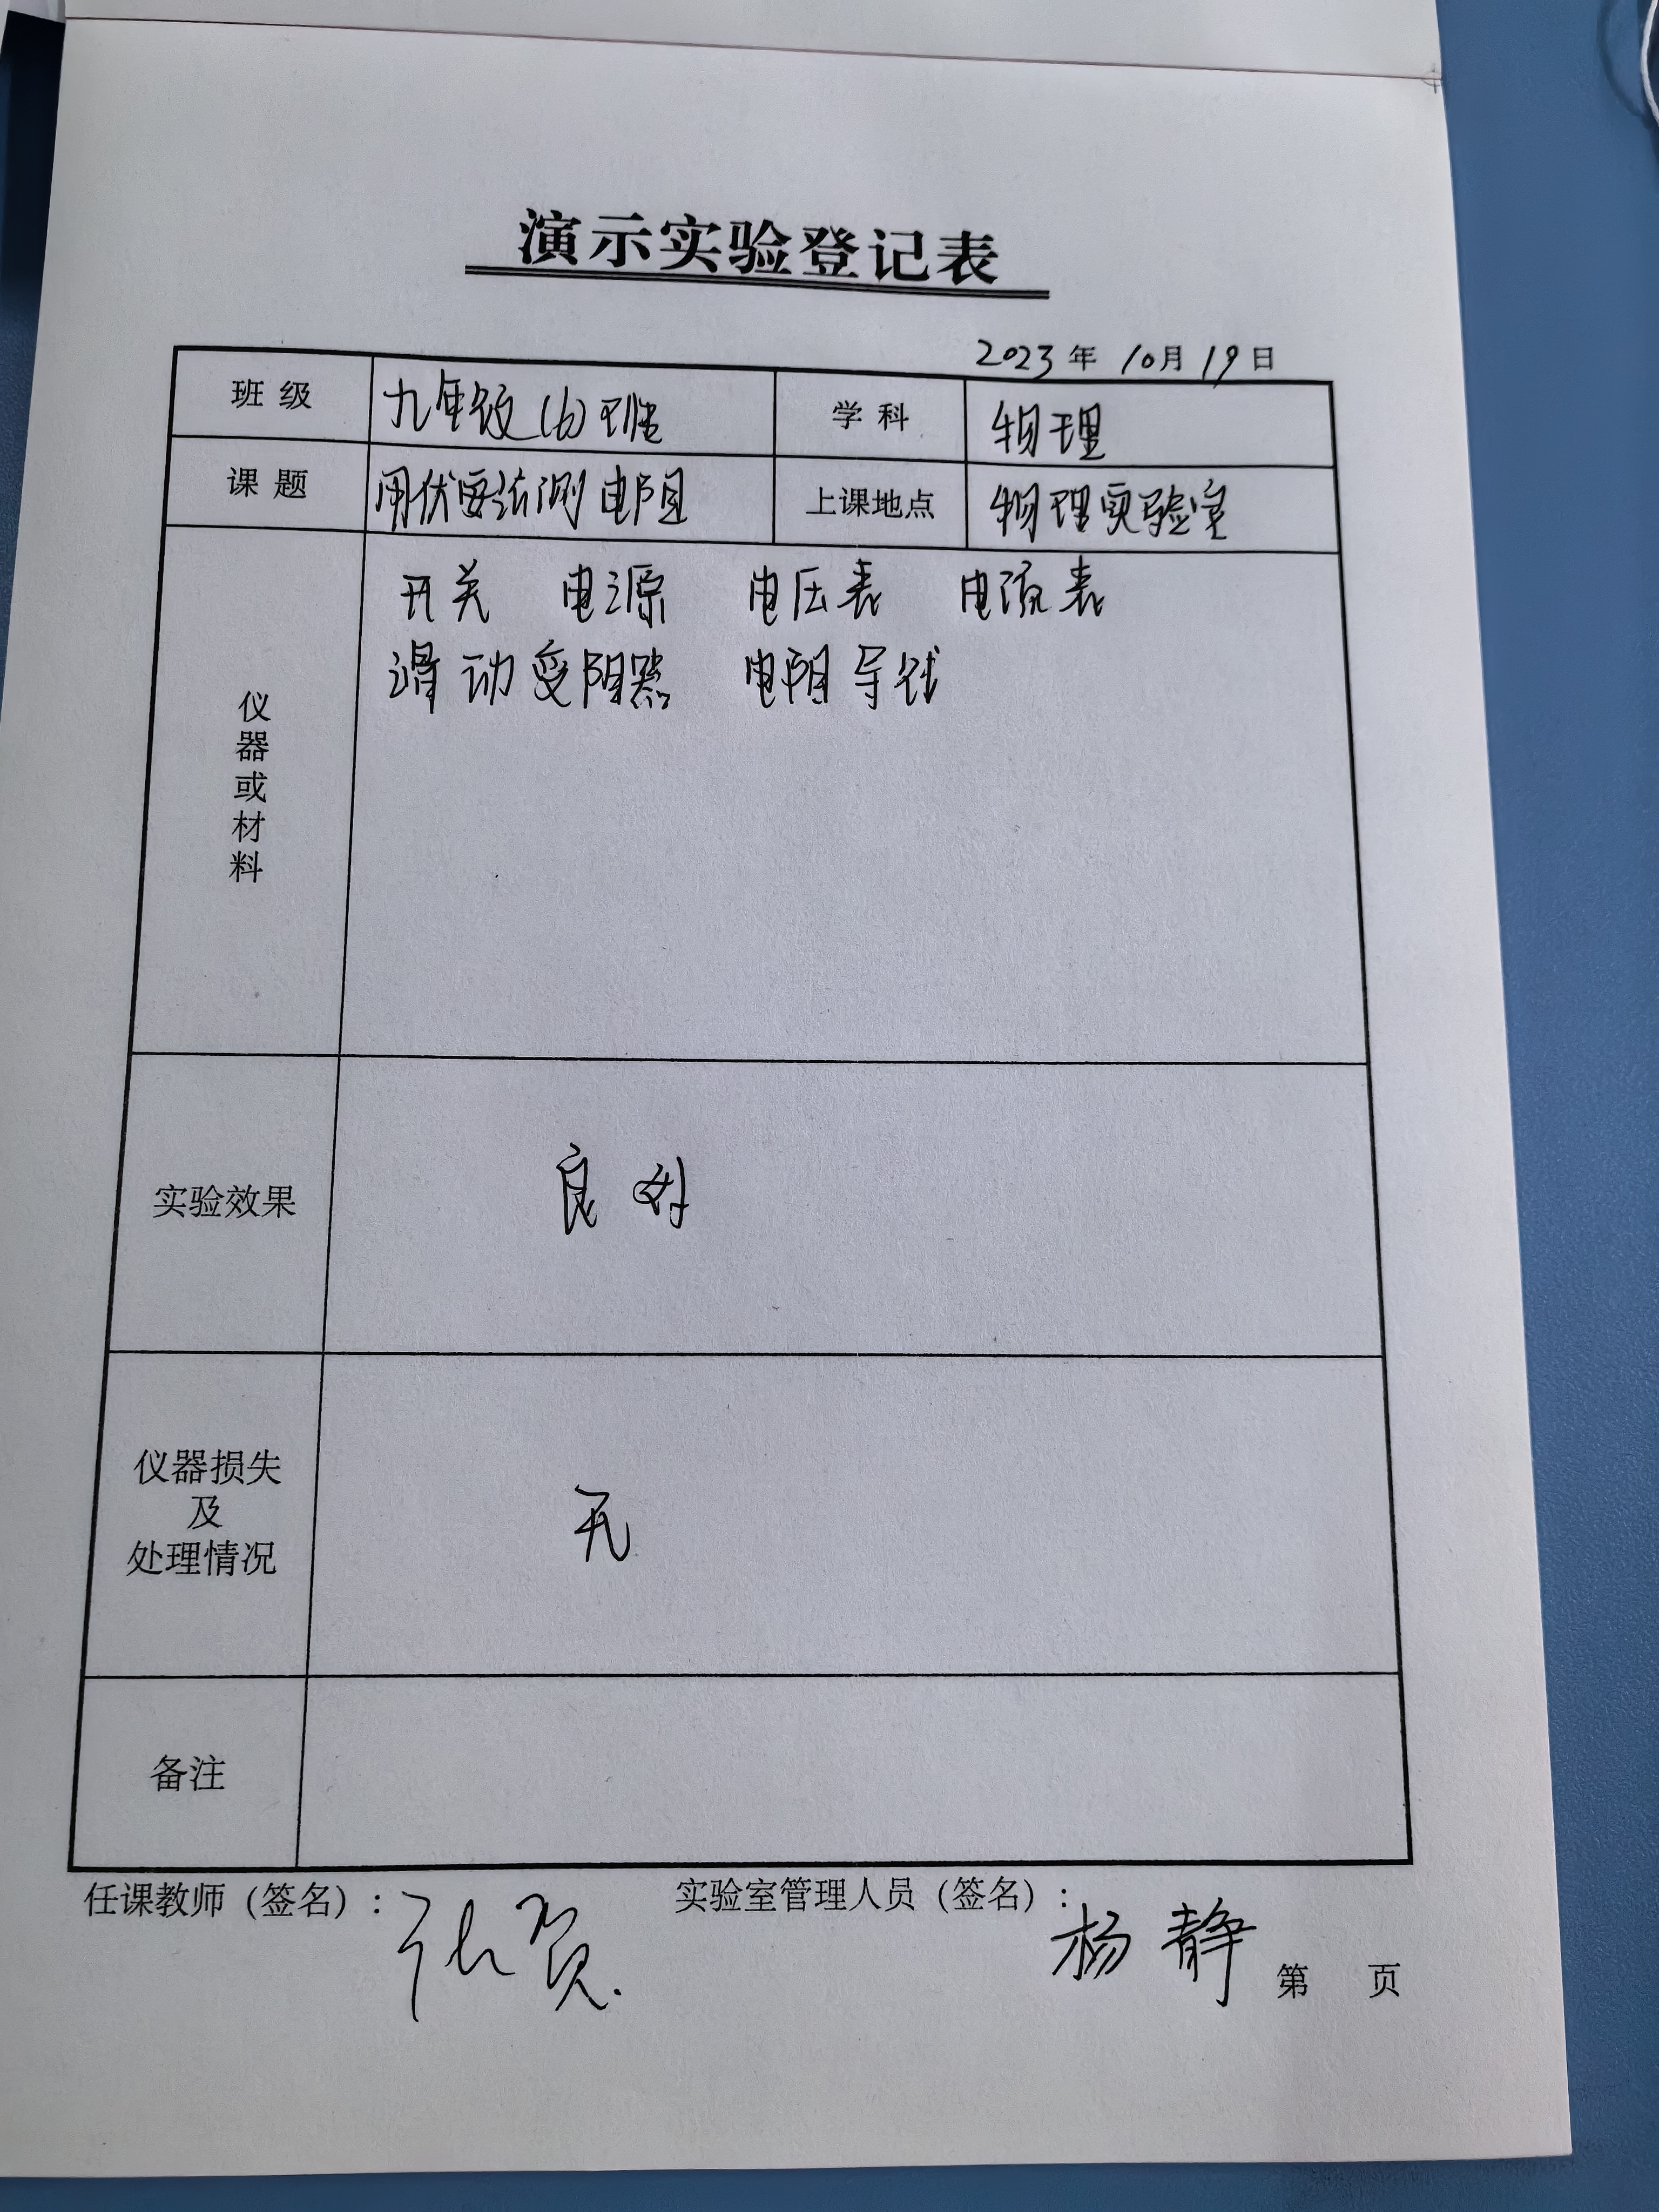 演示实验登记表
2023年10月19日
班级 九年级(6)班 学科 物理
课题 用伏安法测电阻 上课地点 物理实验室
仪器或材料
开关 电源 电压表 电流表
滑动变阻器 电阻 导线
实验效果 良好
仪器损失
及
处理情况
无
备注
任课教师（签名）：张贺. 实验室管理人员（签名）：杨静
第 页